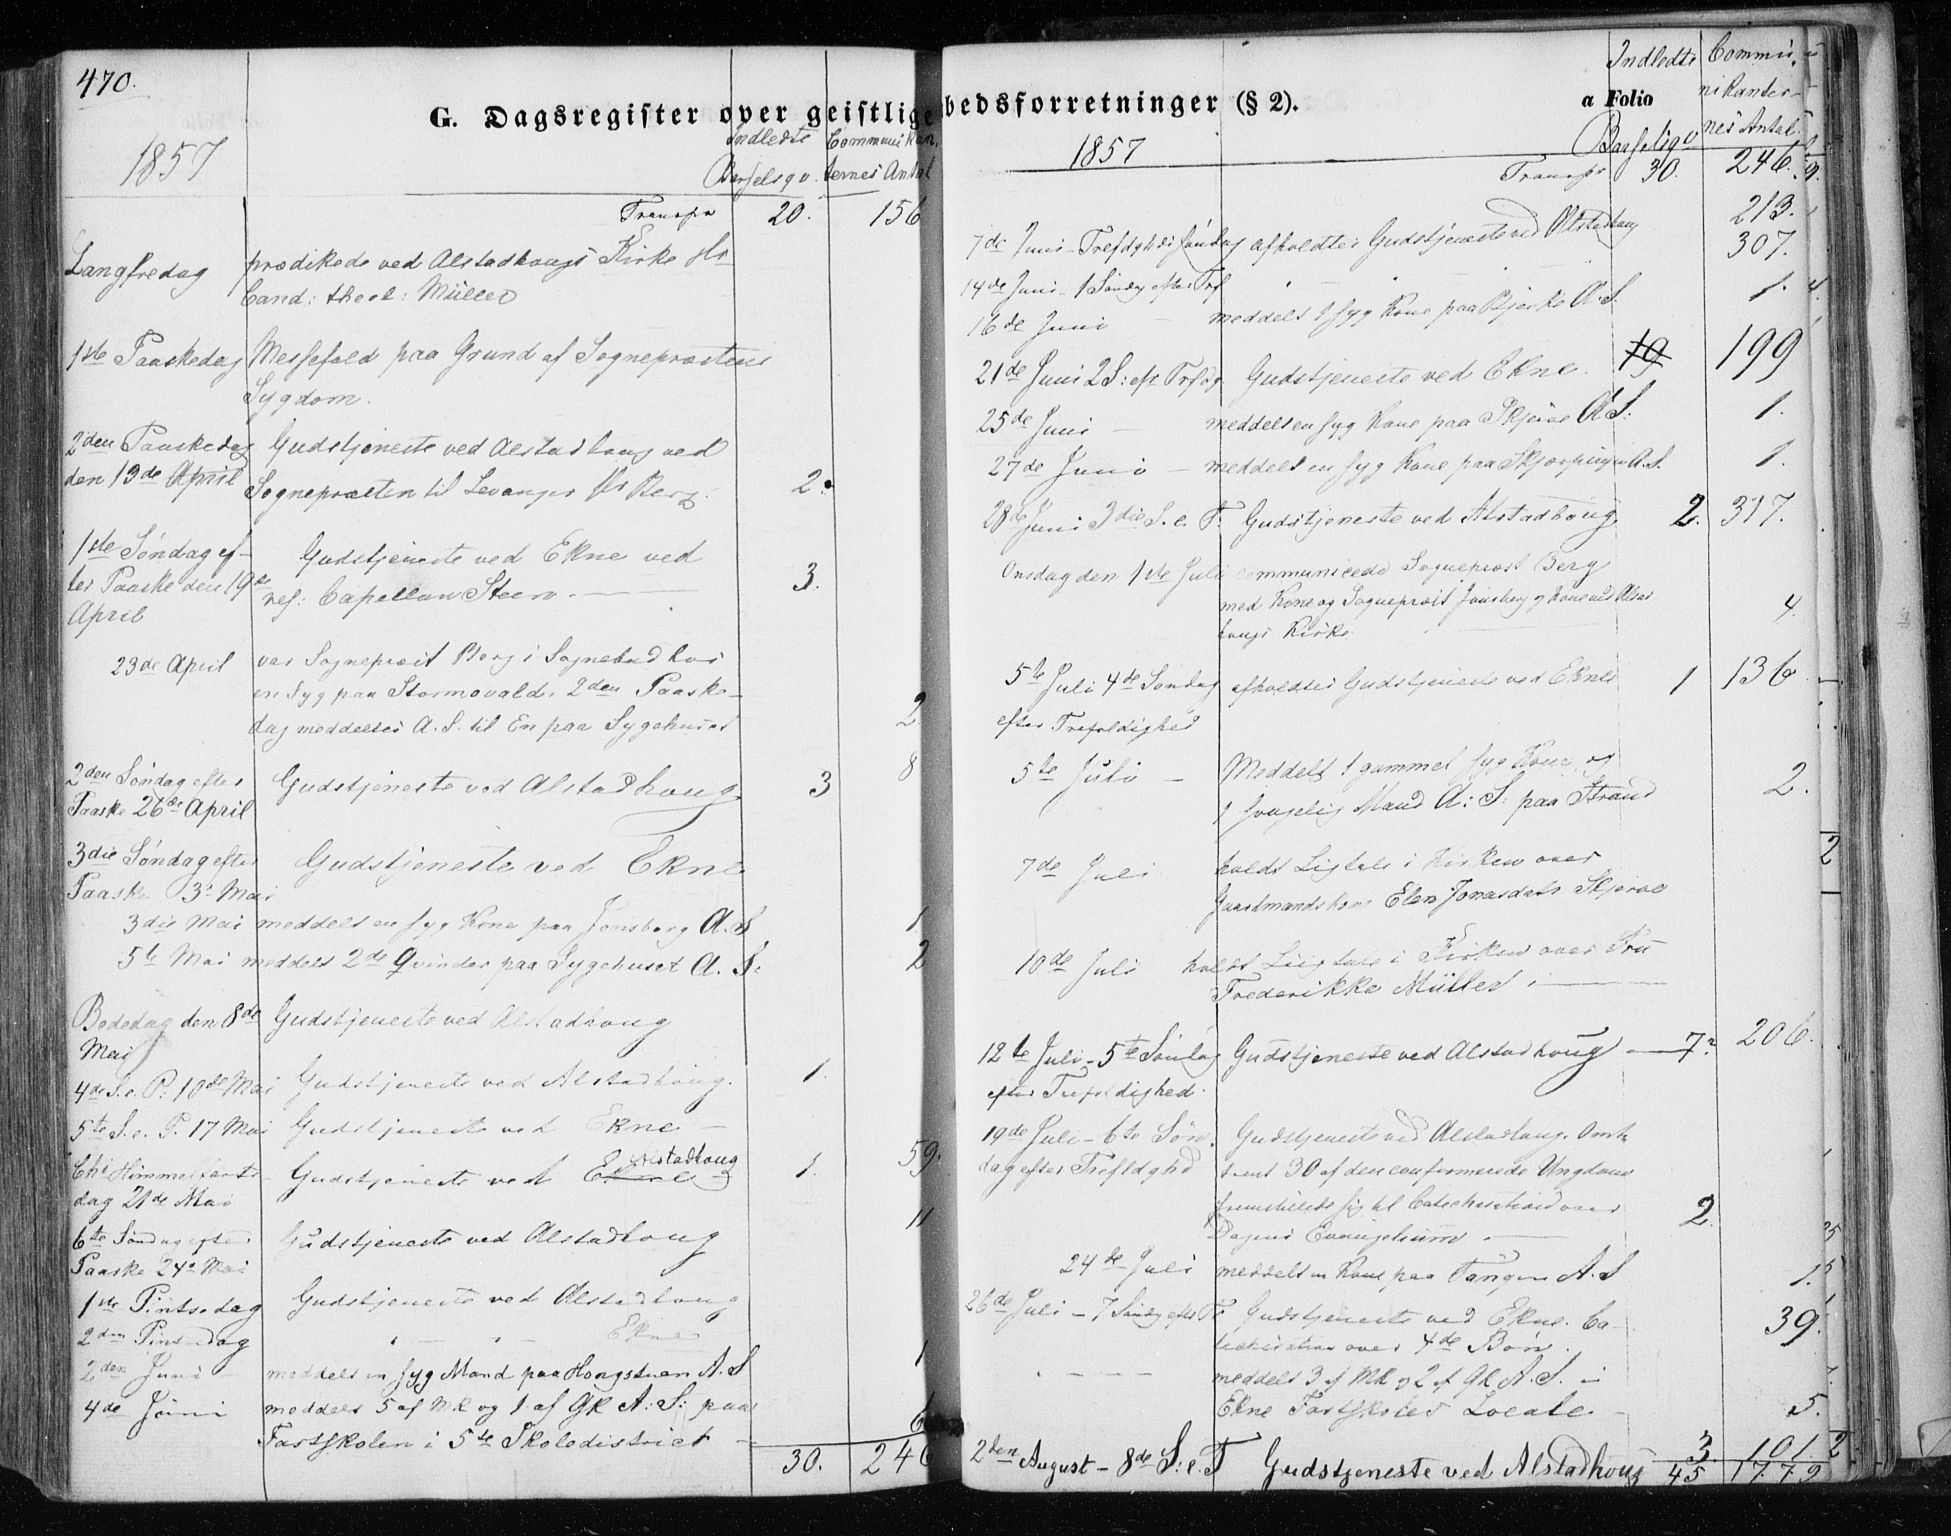 470.
G. Dagsregister over geistlige
1857
Indledte Communikan,
Barselqv. ternes Antal
Transp. 20. 156
Langfredag prædikede ved Alstadhougs Kirke Hr
Cand: theol: Müller
1ste Paaskedag Messefald paa Grund af Sognepræstens
Sygdom.
2den Paaskedag Gudstjeneste ved Alstadhoug ved
den 13de April Sognepræsten til Levanger Hr Berg. 2.
1ste Søndag ef- Gudstjeneste ved Ekne ved
ter Paaske den 19de res: Capellan Steen. 3.
April
23de April var Sognepræst Berg i Sognebud hos
en syg paa Stormovald. 2den Paaske-
dag meddeltes A. S. til En paa Sygehuset 2
2den Søndag efter Gudstjeneste ved Alstadhoug 3 8
Paaske 26de April
3die Søndag efter Gudstjeneste ved Ekne
Paaske 3. Mai
3die Mai meddelt en syg Kone paa Jonsborg A. S 1.
5te Mai meddelt 2de Qvinder paa Sygehuset A. S: 2
Bededag den 8de Gudstjeneste ved Alstadhoug
Mai
4de S. e. P: 10de Mai Gudstjeneste ved Alstadhoug. 1.
5te S. e. P. 17 Mai Gudstjeneste ved Ekne
Alstadhoug
Chr Himmelfarts- Gudstjeneste ved Ekne 1. 59.
dag 21de Mai
6te Søndag efter Gudstjeneste ved Alstadhoug 11
Paaske 24de Mai
1ste Pintsedag Gudstjeneste ved Alstadhoug
2den Pintsedag " — " - Ekne
2den Juni meddelt en syg Mand paa Hougstuen A. S 1
4de Juni meddelt 5 af MK og 1 af QK A: S: paa
Fastskolen i 5te Skoledistrict 6
30. 246
bedsforretninger (§ 2).
a Folio
1857
Indledte Commu-
nikanter-
Barselqv nes Antal.
Transp. 30. 246.
213.
7de Juni - Trefdgheds Søndag afholdtes Gudstjeneste ved Alstadhoug
307.
14de Juni - 1 Søndg efter Tref
16de Juni meddelt 1 syg Kone paa Bjerke A. S. 1.
21de Juni 2 S: eft Trfdg Gudstjeneste ved Ekne. 19 199
25de Juni — meddelt en syg Kone paa Skjerve A. S: 1.
27de Juni — meddelt en syg Kone paa Skjerpingen A. S. 1.
28de Juni 3die S. e. T. Gudstjeneste ved Alstadhoug 2. 317.
Onsdag den 1ste Juli communicede Sognepræst Berg
med Kone og Sognepræst Jonsberg og Kone ved Alstad
hougs Kirke 4.
5te Juli 4de Søndag afholdtes Gudstjeneste ved Ekne 1 136
efter Trefoldighed
5te Juli — Meddelt 1 gammel syg Kone og
1 svagelig Mand A: S: paa Strand 2.
7de Juli holdt Ligtale i Kirken over
Gaardmandskone Elen Jonasdatr Skjerve
10de Juli holdt Ligtale i Kirken over Fru
Frederikke Müller
12te Juli - 5te Søndag Gudstjeneste ved Alstadhoug 7. 206.
efter Trefoldighed.
19de Juli - 6te Søn- Gudstjeneste ved Alstadhoug. Omt-
dag efter Trefldghd trent 30 af den confirmerede Ungdom
fremstillede sig til Catechisation over
Dagens Evangelium 2.
24de Juli meddelt en Kone paa Tangen A. S 1.
26de Juli - 7 Søndg efter Tr Gudstjeneste ved Ekne. Ca-
techisation over 4de Bøn. 39.
meddelt 3 af MK og 2 af QK A. S. i
Ekne Fastskoles Locale 5.
2den August - 8de S: e. T Gudstjeneste ved Alstadhoug 3. 101
45 1779